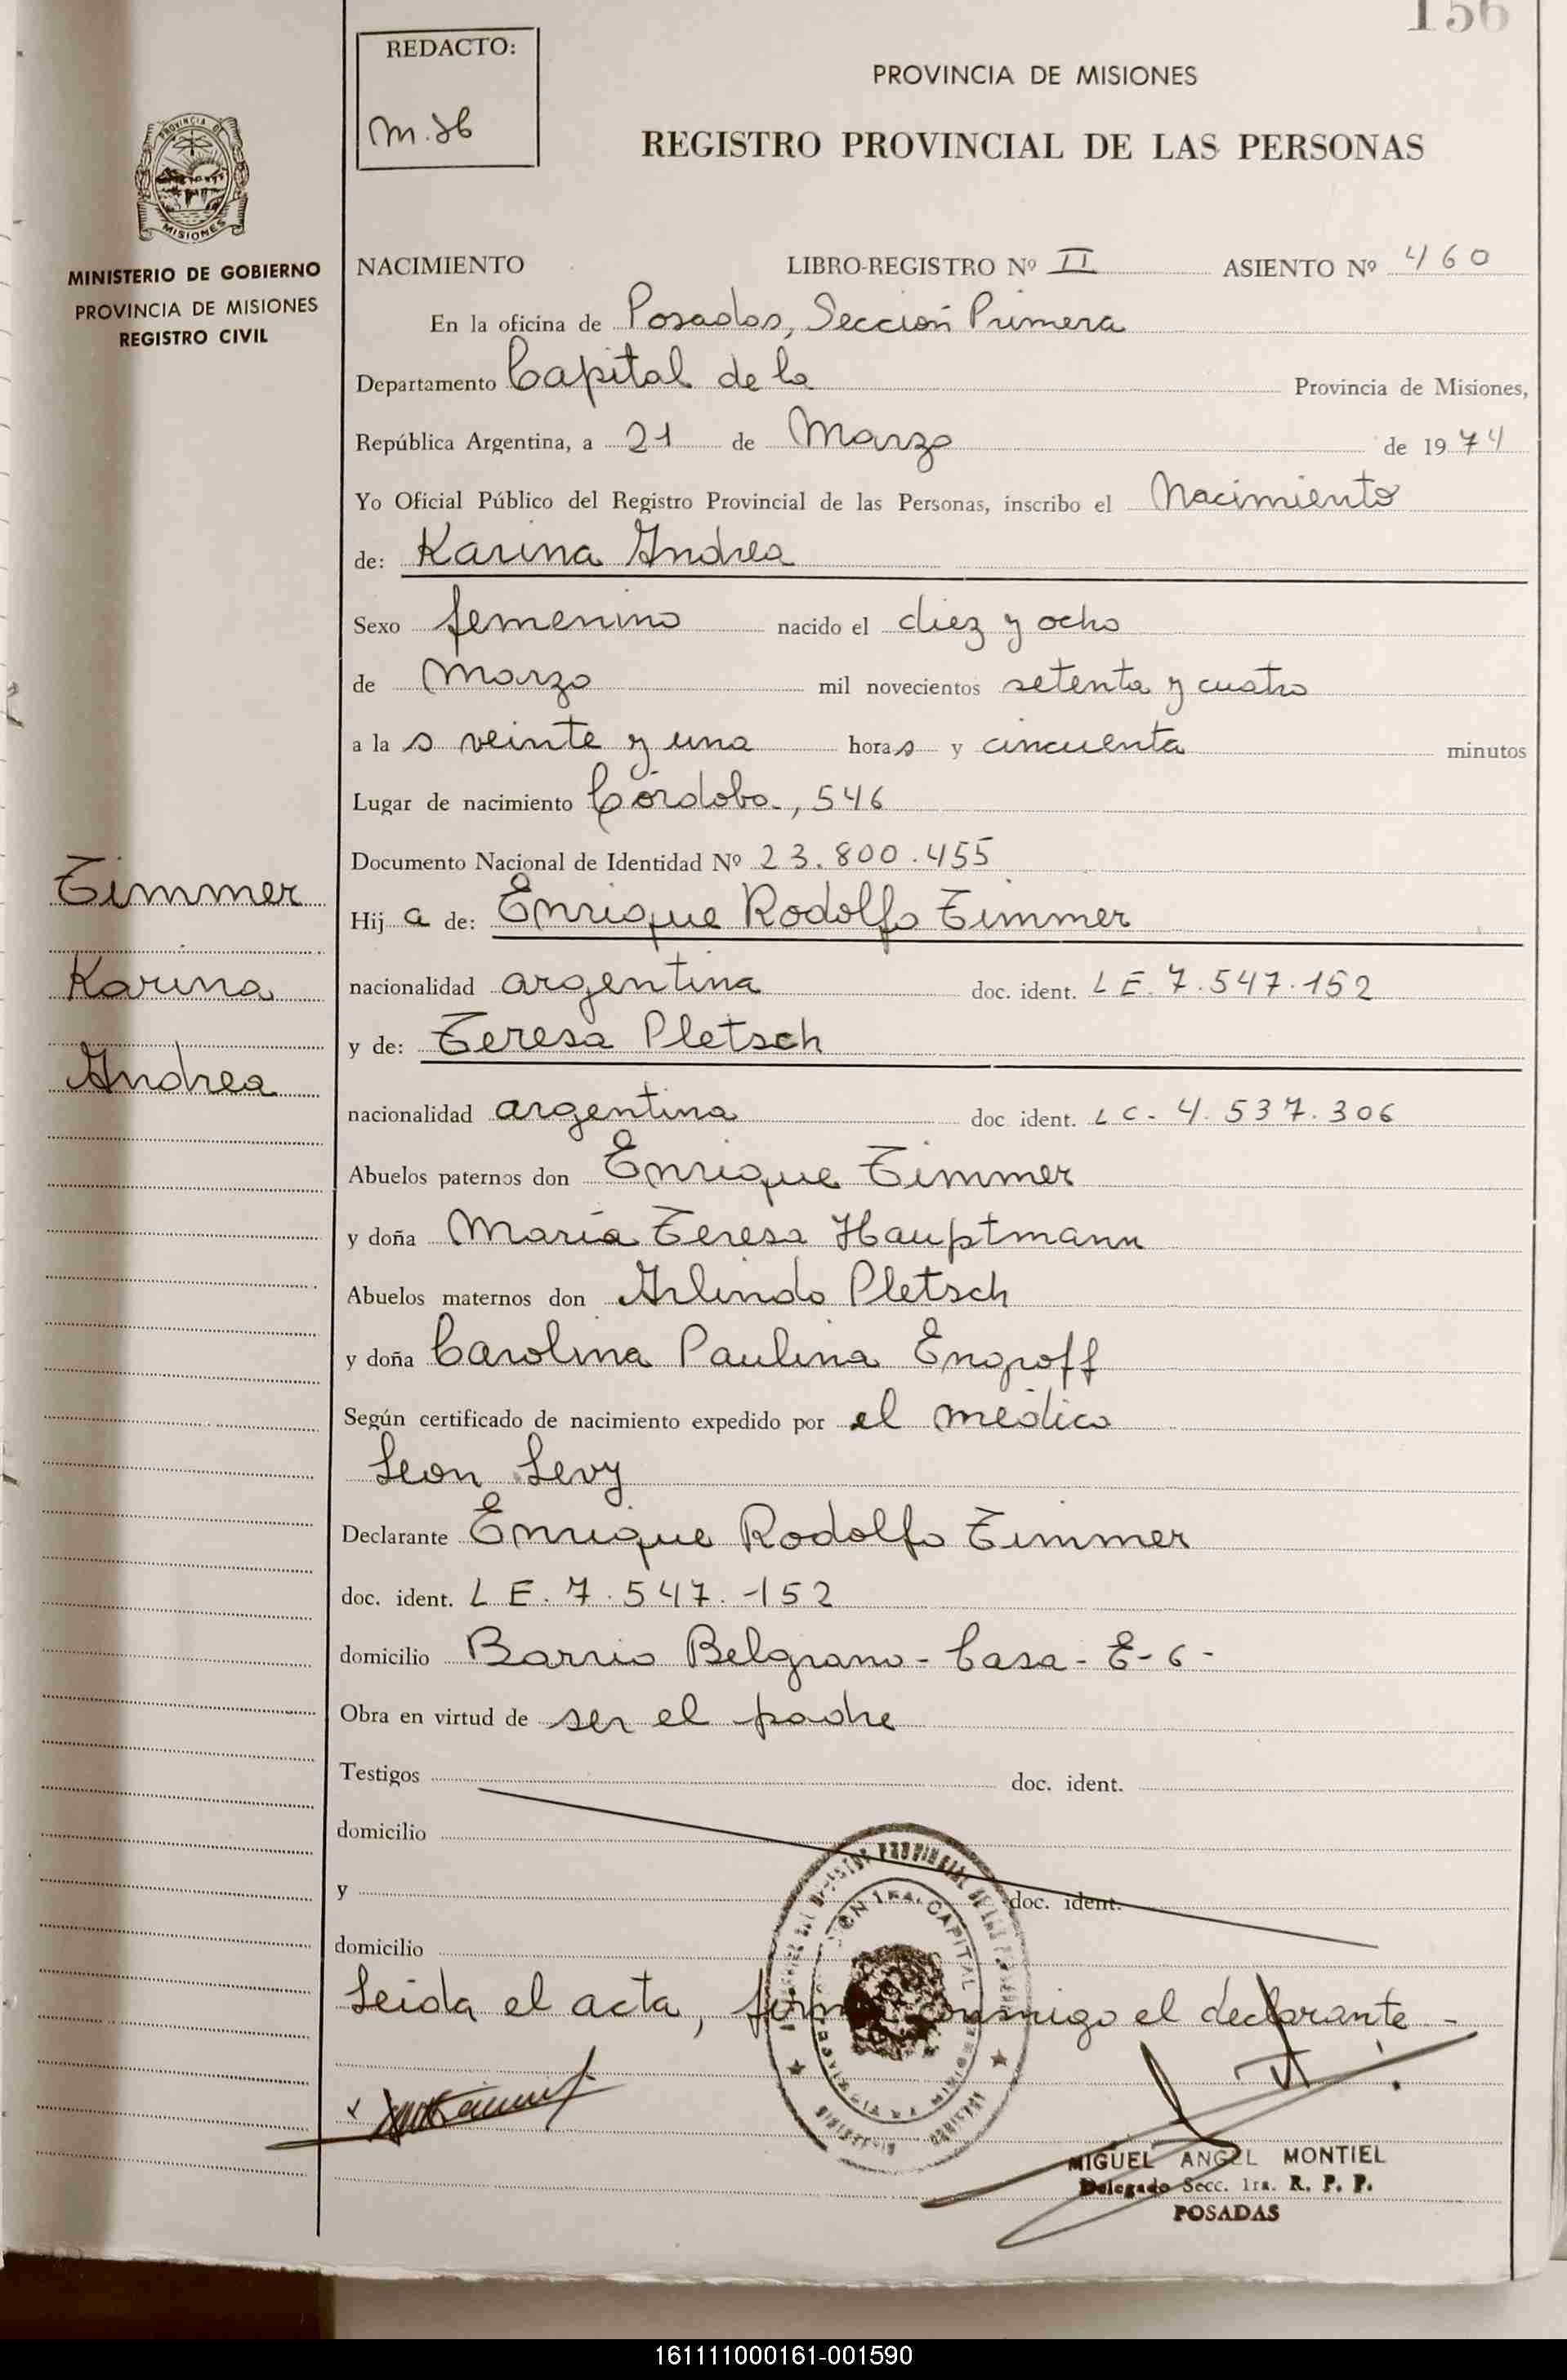 156
REDACTO:
PROVINCIA DE MISIONES
REGISTRO PROVINCIAL DE LAS PERSONAS
PROVINCIA DE
MISIONES
MINISTERIO DE GOBIERNO
PROVINCIA DE MISIONES
REGISTRO CIVIL
NACIMIENTO LIBRO-REGISTRO Nº II ASIENTO Nº 460
En la oficina de Posadas, Sección Primera
Departamento Capital de la Provincia de Misiones,
República Argentina, a 21 de Marzo de 1974
Yo Oficial Público del Registro Provincial de las Personas, inscribo el Nacimiento
de: Karina Andrea
Sexo femenino nacido el diez y ocho
de Marzo mil novecientos setenta y cuatro
a la s veinte y una horas y cincuenta minutos
Lugar de nacimiento Córdoba, 546
Documento Nacional de Identidad Nº 23.800.455
Timmer
Hij a de: Enrique Rodolfo Timmer
Karina
nacionalidad argentina doc. ident. LE. 7.547.152
y de: Teresa Pletsch
Andrea
nacionalidad argentina doc ident. LC- 4.537.306
Abuelos paternos don Enrique Timmer
y doña María Teresa Hauptmann
Abuelos maternos don Arlindo Pletsch
y doña Carolina Paulina Engroff
Según certificado de nacimiento expedido por el médico
Leon Levy
Declarante Enrique Rodolfo Timmer
doc. ident. LE. 7.547.152
domicilio Barrio Belgrano - Casa - E-6-
Obra en virtud de ser el padre
Testigos doc. ident.
domicilio
y doc. ident.
domicilio
Leida el acta, firma conmigo el declarante.-
MIGUEL ANGEL MONTIEL
Delegado Secc. 1ra. R. P. P.
POSADAS
161111000161-001590